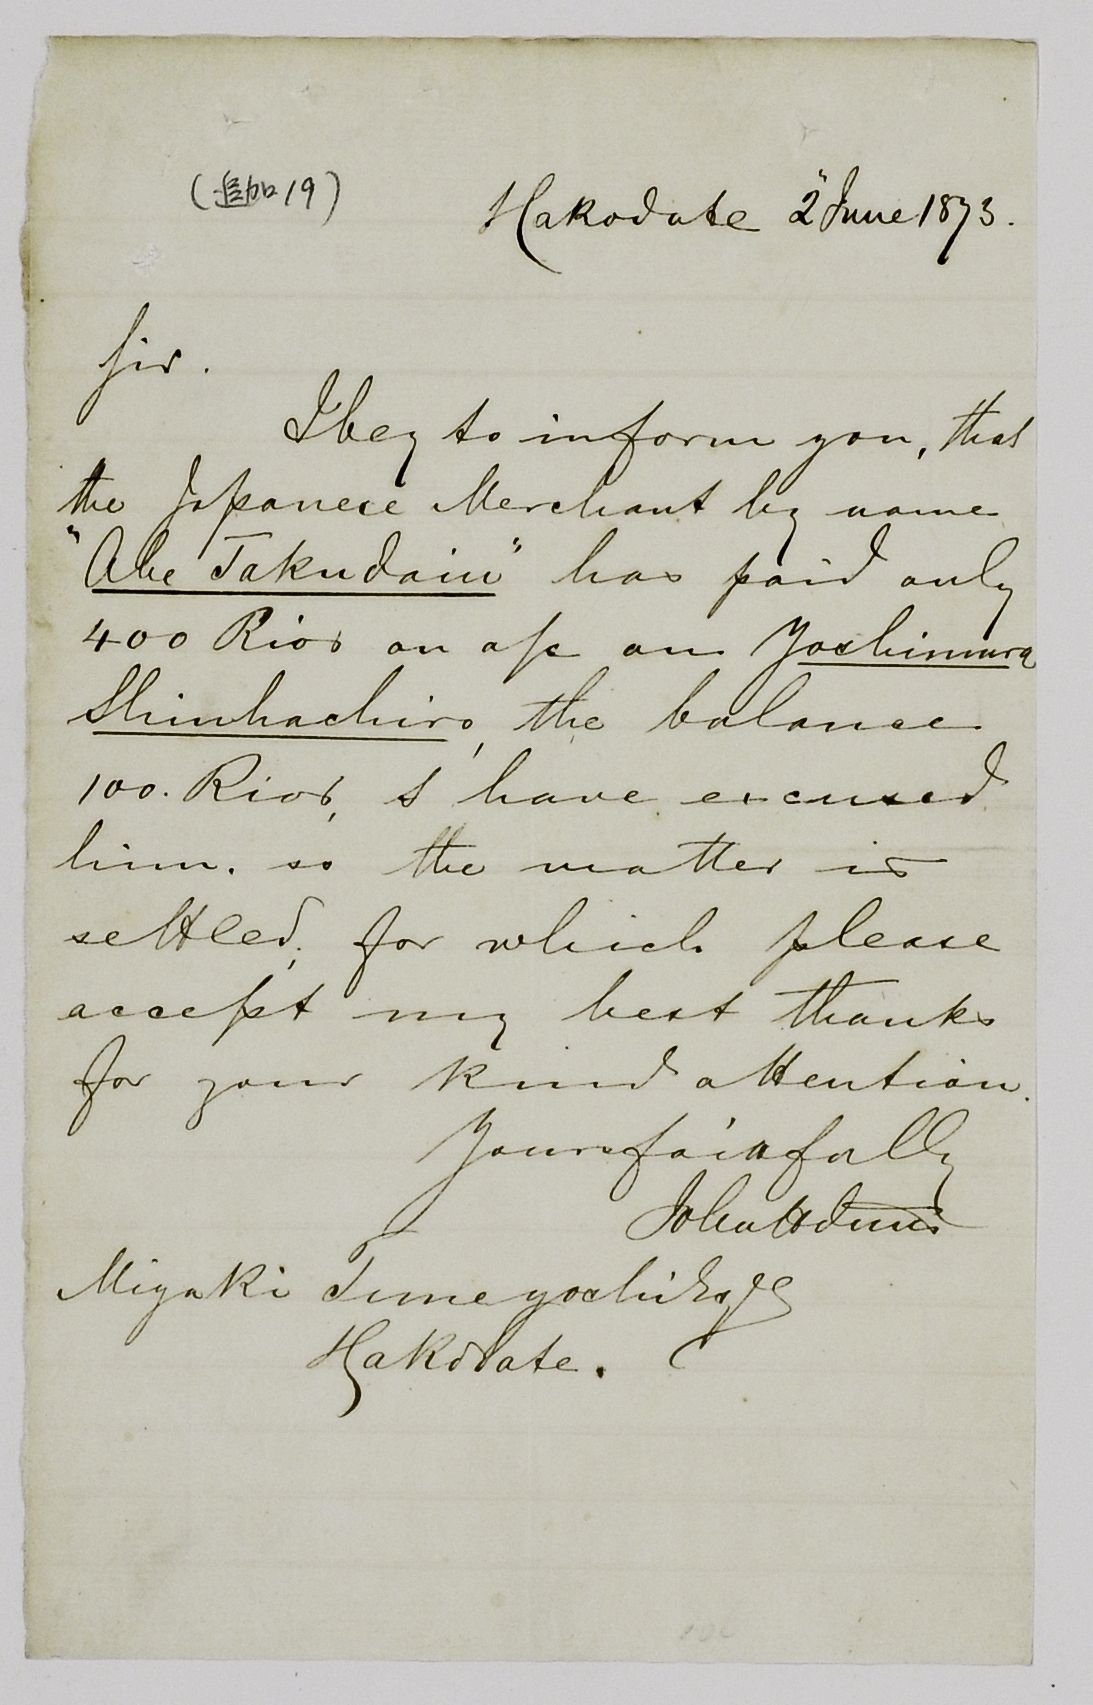 (追加19)
Hakodate 2" June 1873.
Sir.
I beg to inform you, that
the Japanese Merchant by name
"Abe Takudain" has paid only
400 Rios on a/c on Yoshimura
Shinhachiro, the balance
100. Rios, I have excused
him. so the matter is
settled, for which please
accept my best thanks
for your kind attention.
Yours faithfully
John
Miyaki Tumeyoshi Esqre
Hakodate.